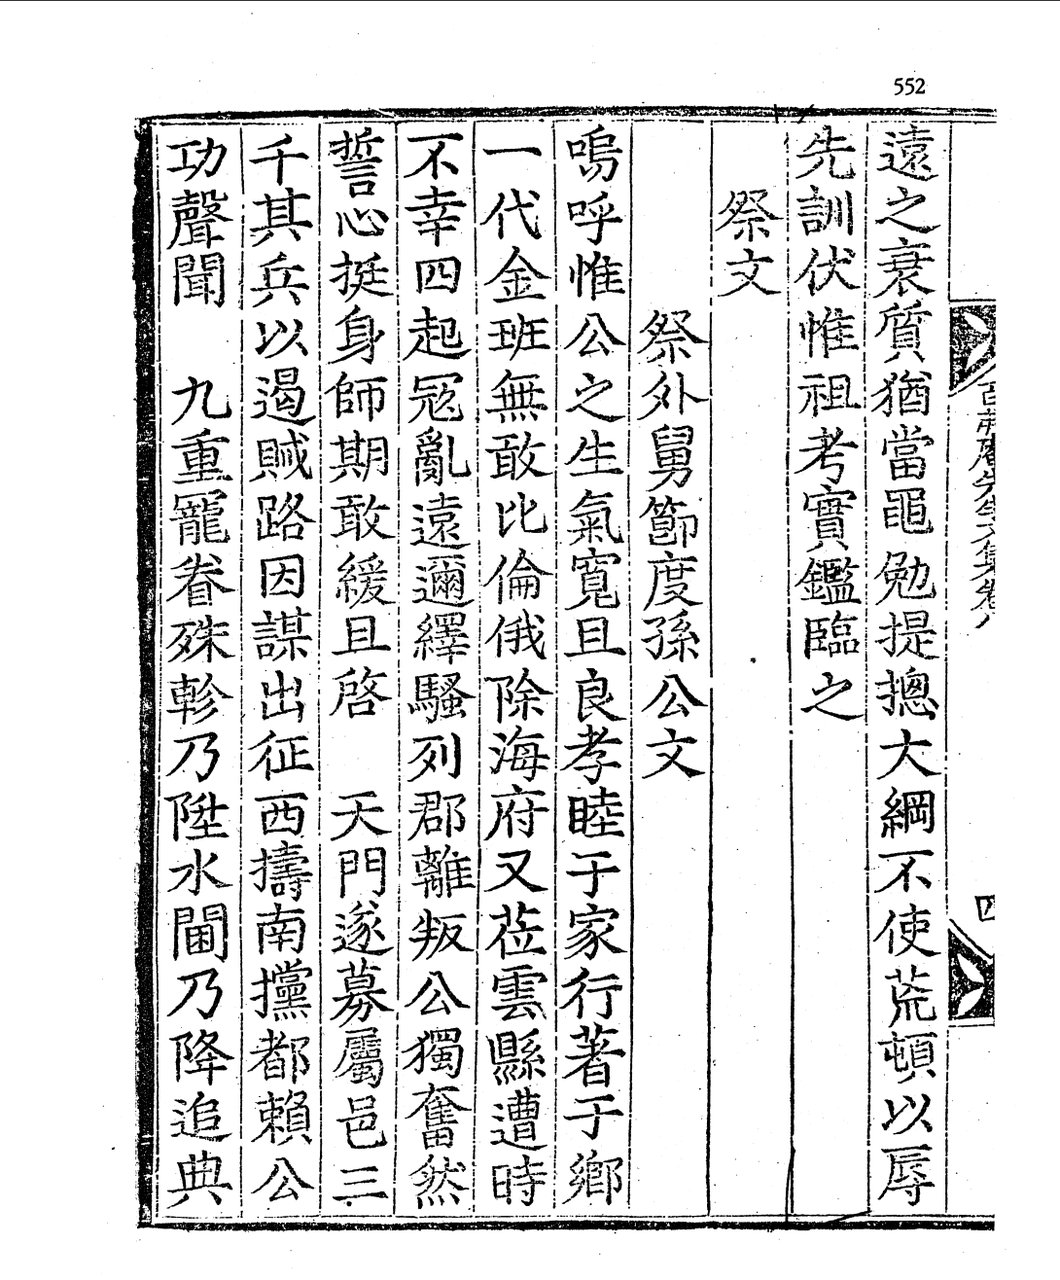 552
遠之衰質猶當黽勉提摠大綱不使荒頓以辱
先訓伏惟祖考實鑑臨之
祭文
祭外舅節度孫公文
嗚呼惟公之生氣寬且良孝睦于家行著于鄉
一代金班無敢比倫俄除海府又莅雲縣遭時
不幸四起冦亂遠邇繹騷列郡離叛公獨奮然
誓心挺身師期敢緩且啓 天門遂募屬邑三
千其兵以遏賊路因謀出征西擣南攩都賴公
功聲聞 九重寵眷殊軫乃陞水閫乃降追典
先生文集卷八
四